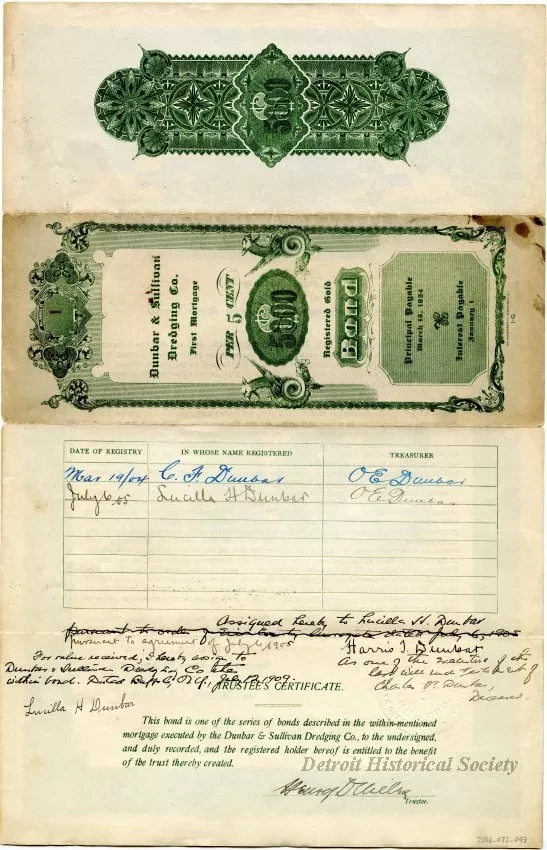 $5000
1
Dunbar & Sullivan
Dredging Co.
First Mortgage
5 PER CENT
$5000
Registered Gold
Bond
Principal Payable
March 15, 1924
Interest Payable
January 1
DATE OF REGISTRY IN WHOSE NAME REGISTERED TREASURER
Mar 19/04 C. F. Dunbar O E Dunbar
July 6, 05 Lucilla H Dunbar O E Dunbar
Assigned hereby to Lucilla H. Dunbar
pursuant to agreement of July 6 1905
Harris T. Dunbar
As one of the executors of the
last will and testament of
Charles F. Dunbar,
Deceased.
For value received, I hereby assign to
Dunbar & Sullivan Dredging Co the
within bond. Dated 1909.
Lucilla H Dunbar
TRUSTEE'S CERTIFICATE.
This bond is one of the series of bonds described in the within-mentioned
mortgage executed by the Dunbar & Sullivan Dredging Co., to the undersigned,
and duly recorded, and the registered holder hereof is entitled to the benefit
of the trust thereby created.
Detroit Historical Society
Henry
Trustee.
2016.072.043